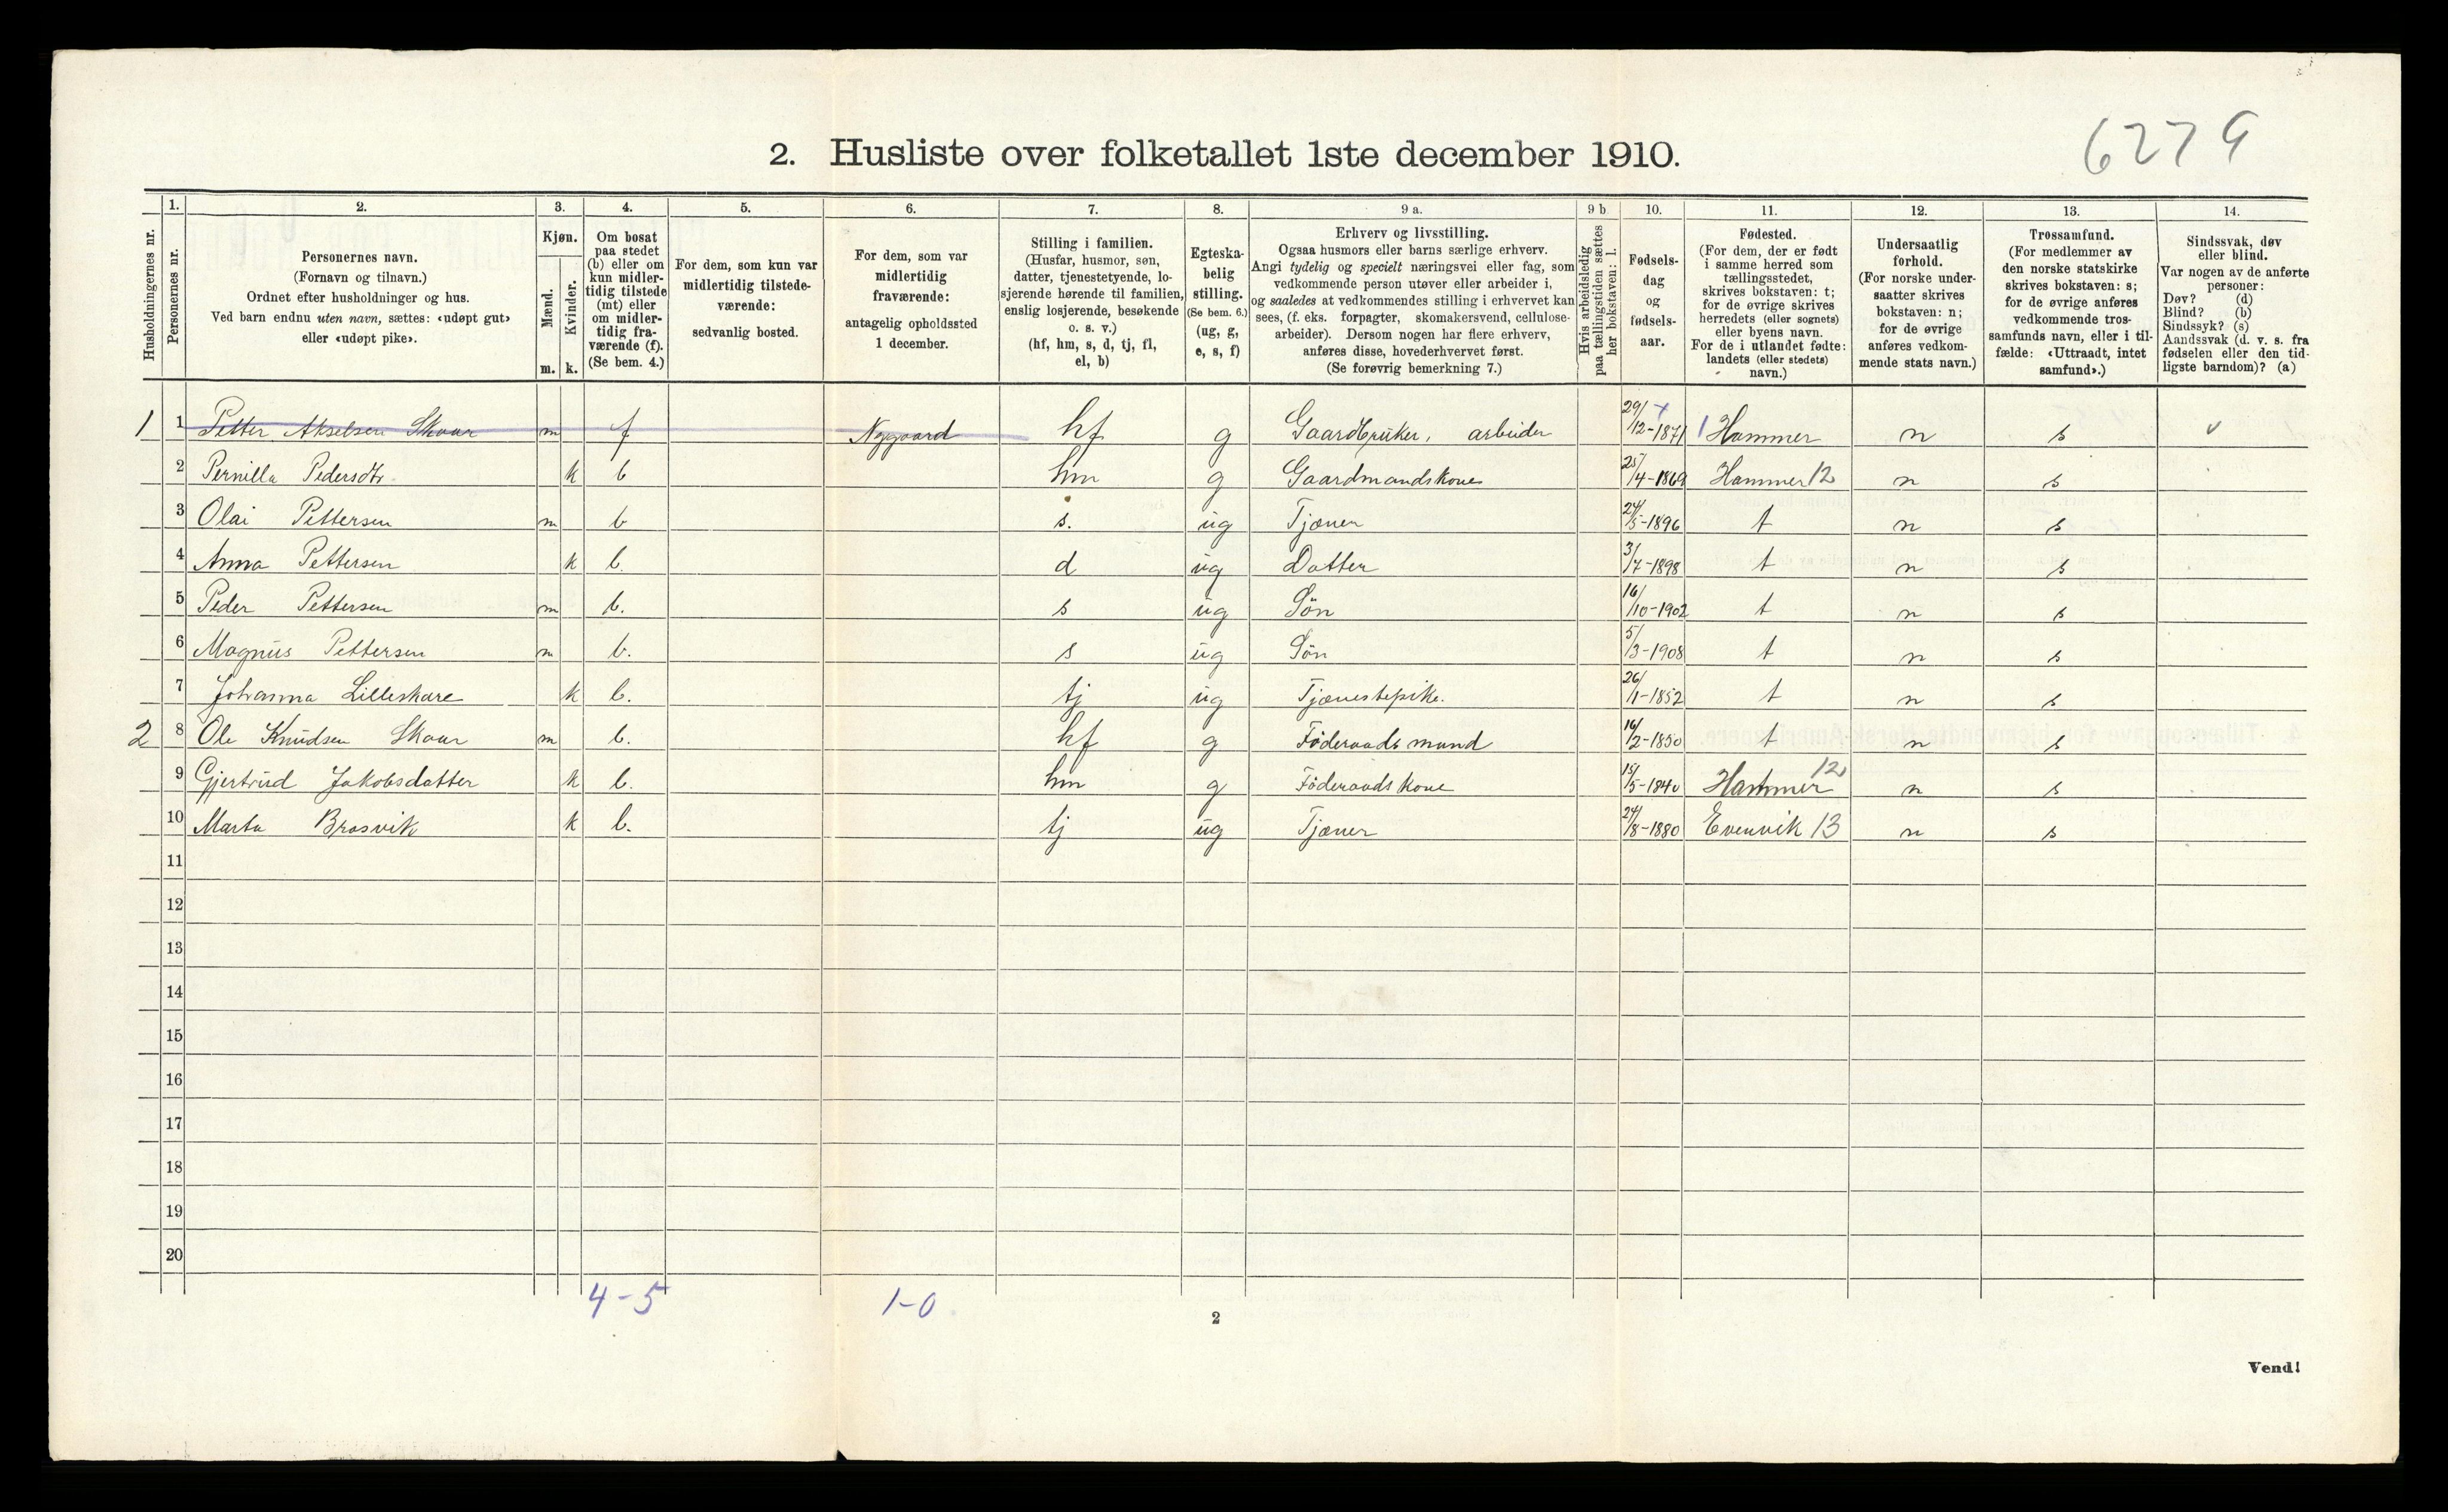 6279
2. Husliste over folketallet 1ste december 1910.
1. 2. 3. 4. 5. 6. 7. 8. 9 a. 9 b 10. 11. 12. 13. 14.
Husholdningernes nr.
Personernes nr.
Personernes navn.
(Fornavn og tilnavn.)
Ordnet efter husholdninger og hus.
Ved barn endnu uten navn, sættes: «udøpt gut»
eller «udøpt pike».
Kjøn.
Mænd.
Kvinder.
m. k.
Om bosat
paa stedet
(b) eller om
kun midler-
tidig tilstede
(mt) eller
om midler-
tidig fra-
værende (f).
(Se bem. 4.)
For dem, som kun var
midlertidig tilstede-
værende:
sedvanlig bosted.
For dem, som var
midlertidig
fraværende:
antagelig opholdssted
1 december.
Stilling i familien.
(Husfar, husmor, søn,
datter, tjenestetyende, lo-
sjerende hørende til familien,
enslig losjerende, besøkende
o. s. v.)
(hf, hm, s, d, tj, fl,
el, b)
Egteska-
belig
stilling.
(Se bem. 6.)
(ug, g,
e, s, f)
Erhverv og livsstilling.
Ogsaa husmors eller barns særlige erhverv.
Angi tydelig og specielt næringsvei eller fag, som
vedkommende person utøver eller arbeider i,
og saaledes at vedkommendes stilling i erhvervet kan
sees, (f. eks. forpagter, skomakersvend, cellulose-
arbeider). Dersom nogen har flere erhverv,
anføres disse, hovederhvervet først.
(Se forøvrig bemerkning 7.)
Hvis arbeidsledig
paa tællingstiden sættes
her bokstaven: l.
Fødsels-
dag
og
fødsels-
aar.
Fødested.
(For dem, der er født
i samme herred som
tællingsstedet,
skrives bokstaven: t;
for de øvrige skrives
herredets (eller sognets)
eller byens navn.
For de i utlandet fødte:
landets (eller stedets)
navn.)
Undersaatlig
forhold.
(For norske under-
saatter skrives
bokstaven: n;
for de øvrige
anføres vedkom-
mende stats navn.)
Trossamfund.
(For medlemmer av
den norske statskirke
skrives bokstaven: s;
for de øvrige anføres
vedkommende tros-
samfunds navn, eller i til-
fælde: «Uttraadt, intet
samfund».)
Sindssvak, døv
eller blind.
Var nogen av de anførte
personer:
Døv? (d)
Blind? (b)
Sindssyk? (s)
Aandssvak (d. v. s. fra
fødselen eller den tid-
ligste barndom)? (a)
1 1 Petter Akselsen Skaar m f Nygaard hf g Gaardbruker, arbeider 29/12-1871 Hammer n s v
2 Pernilla Pedersdtr k b hm g Gaardmandskone 25/4-1869 Hammer 12 n s
3 Olai Pettersen m b s. ug Tjæner 24/5-1896 t n s
4 Anna Pettersen k b. d ug Datter 3/7-1898 t n s
5 Peder Pettersen m b. s ug Sön 16/10-1902 t n s
6 Magnus Pettersen m b. s ug Sön 5/3-1908 t n s
7 Johanna Lilleskare k b. tj ug Tjænestepike. 26/1-1852 t n s
2 8 Ole Knudsen Skaar m b. hf g Föderaadsmand 16/2-1850 t n s
9 Gjertrud Jakobsdatter k b. hm g Föderaadskone 15/5-1840 Hammer 12 n s
10 Marta Brosvik k b. tj ug Tjæner 24/8-1880 Evenvik 13 n s
11
12
13
14
15
16
17
18
19
20
4-5 1-0
2
Vend!